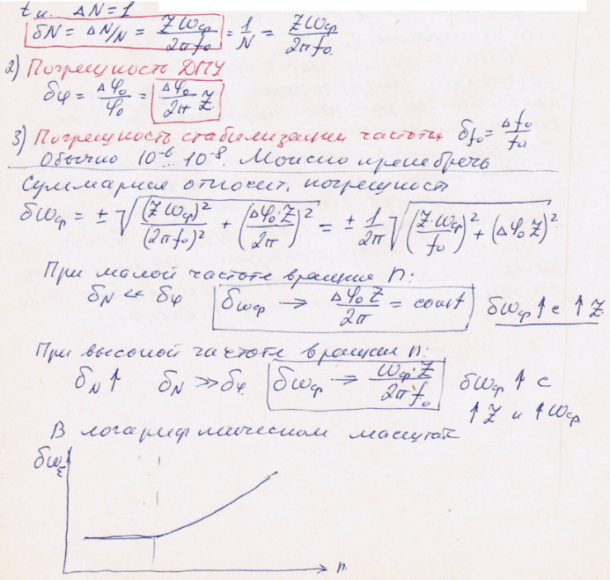 т.к. ΔN=1
δN = ΔN/N = Zωср/2πf₀ = 1/N = Zωср/2πf₀
2) Погрешность ДПУ
δφ = Δφ₀/φ₀ = Δφ₀/2π Z
3) Погрешность стабилизации частоты δf₀ = Δf₀/f₀
Обычно 10⁻⁶ 10⁻⁸. Можно пренебречь
Суммарная относит. погрешност
δωср = ± √((Zωср)²/(2πf₀)² + (Δφ₀·Z/2π)²) = ± 1/2π √((Zωср/f₀)² + (Δφ₀Z)²)
При малой частоте вращния n:
δN << δφ δωср → Δφ₀Z/2π = const δωср ↑ с ↑ Z
При высокой частоте вращнии n:
δN ↑ δN >> δφ δωср → ωср·Z/2πf₀ δωср ↑ с
↑ Z и ↑ ωср
В логарифмическом масштабе
δωΣ
n